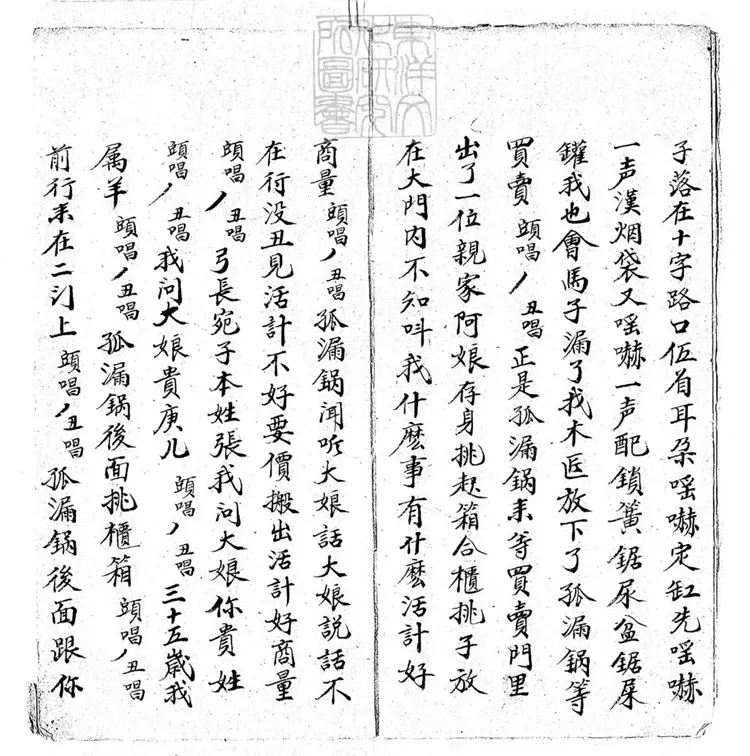 子落在十字路口伍首耳朶喓嚇定缸先喓嚇
一声漢烟袋又喓嚇一声配鎖簧鋸尿盆鋸屎
罐我也會馬子漏了找木匠放下了孤漏鍋等
買賣 頭唱ノ丑唱 正是孤漏鍋来等買賣門里
出了一位親家阿娘存身挑起箱合櫃挑子放
在大門内不知呌我什麽事有什麽活計好
商量 頭唱ノ丑唱 孤漏鍋闻听大娘話大娘説話不
在行没丑見活計不好要價搬出活計好商量
頭唱ノ丑唱 弓長宛子本姓張我问大娘你貴姓
頭唱ノ丑唱 我问大娘貴庚儿 頭唱ノ丑唱 三十五歲我
属羊 頭唱ノ丑唱 孤漏鍋後面挑櫃箱 頭唱ノ丑唱
前行来在二门上 頭唱ノ丑唱 孤漏鍋後面跟你